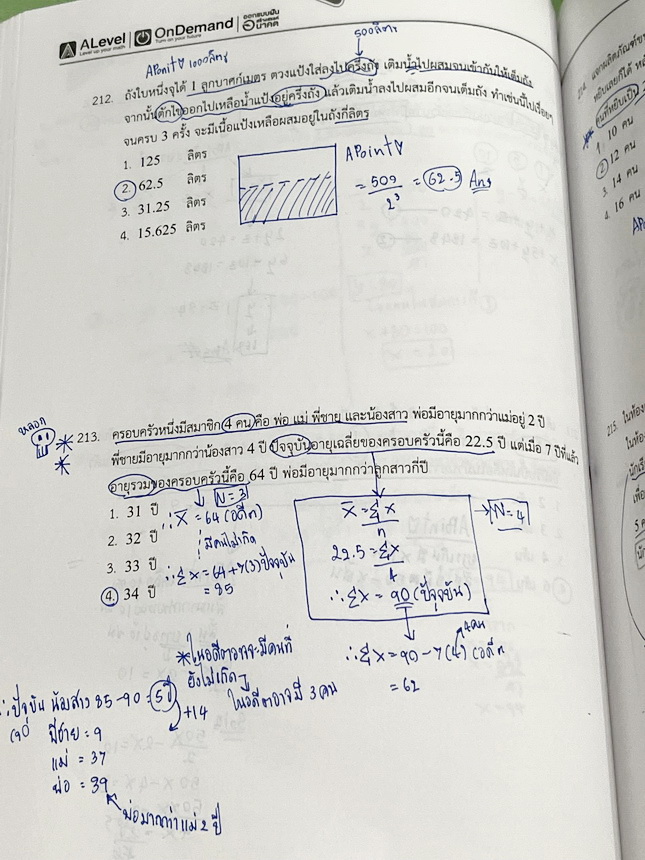 ALevel
Level up your math
OnDemand
Turn on your future
ออกแบบฝัน
สร้างอนาคต
500ลิตร
APoint 1000ลิตร
212. ถังใบหนึ่งจุได้ 1 ลูกบาศก์เมตร ตวงแป้งใส่ลงไปครึ่งถัง เติมน้ำไปผสมจนเข้ากันให้เต็มถัง
จากนั้นตักไขออกไปเหลือน้ำแป้งอยู่ครึ่งถัง แล้วเติมน้ำลงไปผสมอีกจนเต็มถัง ทำเช่นนี้ไปเรื่อยๆ
จนครบ 3 ครั้ง จะมีเนื้อแป้งเหลือผสมอยู่ในถังกี่ลิตร
1. 125 ลิตร
2. 62.5 ลิตร
3. 31.25 ลิตร
4. 15.625 ลิตร
APoint
= 500/2³ = 62.5 Ans
หลอก
213. ครอบครัวหนึ่งมีสมาชิก 4 คน คือ พ่อ แม่ พี่ชาย และน้องสาว พ่อมีอายุมากกว่าแม่อยู่ 2 ปี
พี่ชายมีอายุมากกว่าน้องสาว 4 ปี ปัจจุบันอายุเฉลี่ยของครอบครัวนี้คือ 22.5 ปี แต่เมื่อ 7 ปีที่แล้ว
อายุรวมของครอบครัวนี้คือ 64 ปี พ่อมีอายุมากกว่าลูกสาวกี่ปี
1. 31 ปี
2. 32 ปี
3. 33 ปี
4. 34 ปี
N=3
∴ X̄ = 64 (อดีต)
มีคนไม่เกิด
∴ Σx = 64+7(3) ปัจจุบัน
= 85
X̄ = Σx/n
→ N=4
22.5 = Σx/4
∴ Σx = 90 (ปัจจุบัน)
4คน
∴ Σx = 90 - 7(4) อดีต
= 62
*ในอดีตอาจจะมีคนที่
ยังไม่เกิด
ในอดีตอาจมี 3 คน
∴ ปัจจุบัน น้องสาว 85-90 = 5 ปี
+14
พี่ชาย = 9
แม่ = 37
พ่อ = 39
พ่อมากกว่าแม่ 2 ปี
1. 10 คน
2. 12 คน
3. 14 คน
4. 16 คน
215. ในห้อง